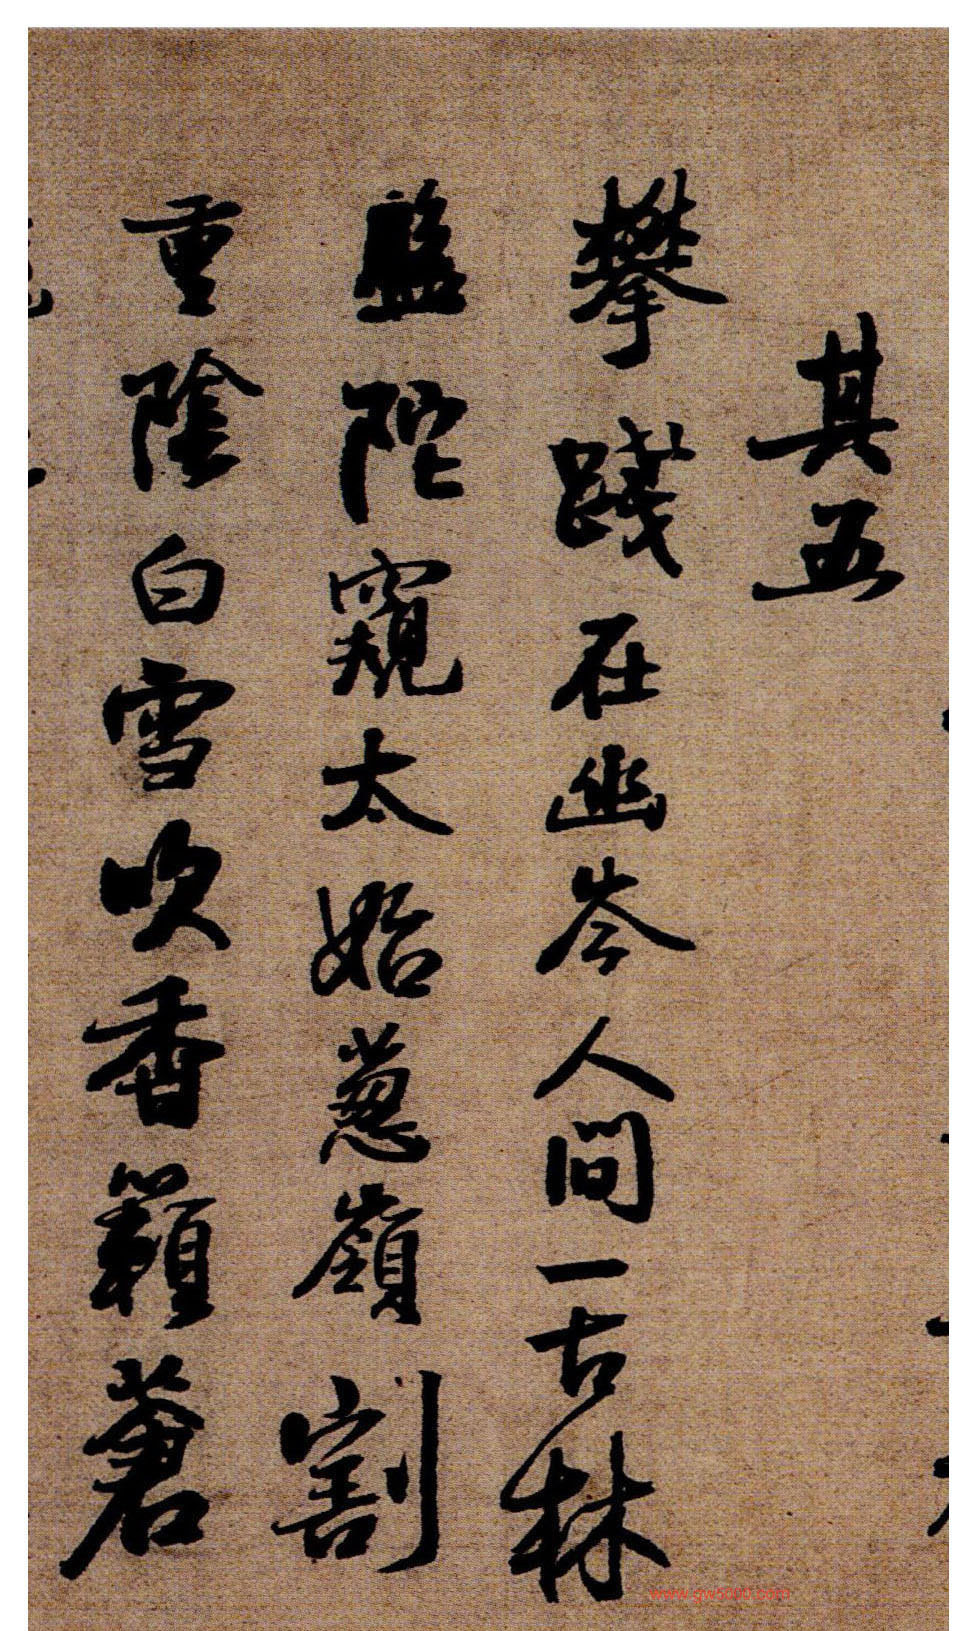 其五
攀踐在幽岑人間一古林
盤陀窺太始蔥嶺割
重陰白雪吹香籟蒼
www.gw5000.com